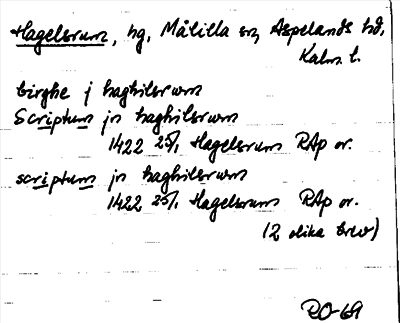 Hagelsrum, hg, Målilla sn, Aspelands hd,
Kalm. l.
birghe j haghilsrwm
Scriptum jn haghilsrwm
1422 25/1 Hagelsrum RAp or.
scriptum jn haghilsrwm
1422 25/1 Hagelsrum RAp or.
(2 olika brev)
RO-69